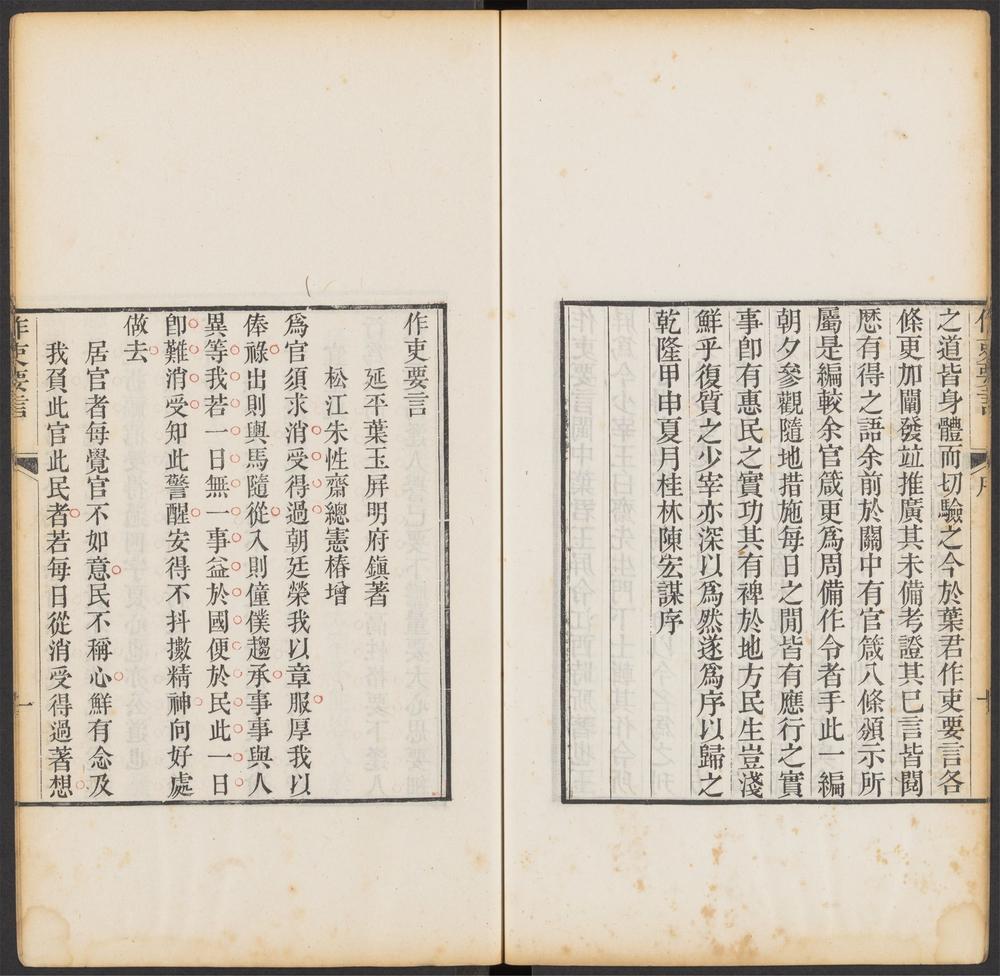 之道皆身體而切驗之今於葉君作吏要言各
條更加闡發竝推廣其未備考證其已言皆閱
歷有得之語余前於關中有官箴八條頒示所
屬是編較余官箴更爲周備作令者手此一編
朝夕參觀隨地措施每日之閒皆有應行之實
事卽有惠民之實功其有裨於地方民生豈淺
鮮乎復質之少宰亦深以爲然遂爲序以歸之
乾隆甲申夏月桂林陳宏謀序
作吏要言
延平葉玉屏明府鎮著
松江朱性齋總憲椿增
爲官須求消受得過朝廷榮我以章服厚我以
俸祿出則輿馬隨從入則僮僕趨承事事與人
異等我若一日無一事益於國便於民此一日
卽難消受知此警醒安得不抖擻精神向好處
做去
居官者每覺官不如意民不稱心鮮有念及
我負此官此民者若每日從消受得過著想
作吏要言
一